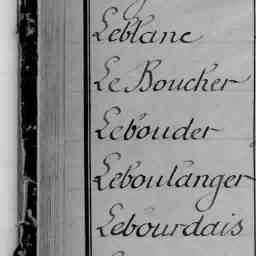 Leblanc
Le Boucher
Lebouder
Leboulanger
Lebourdais